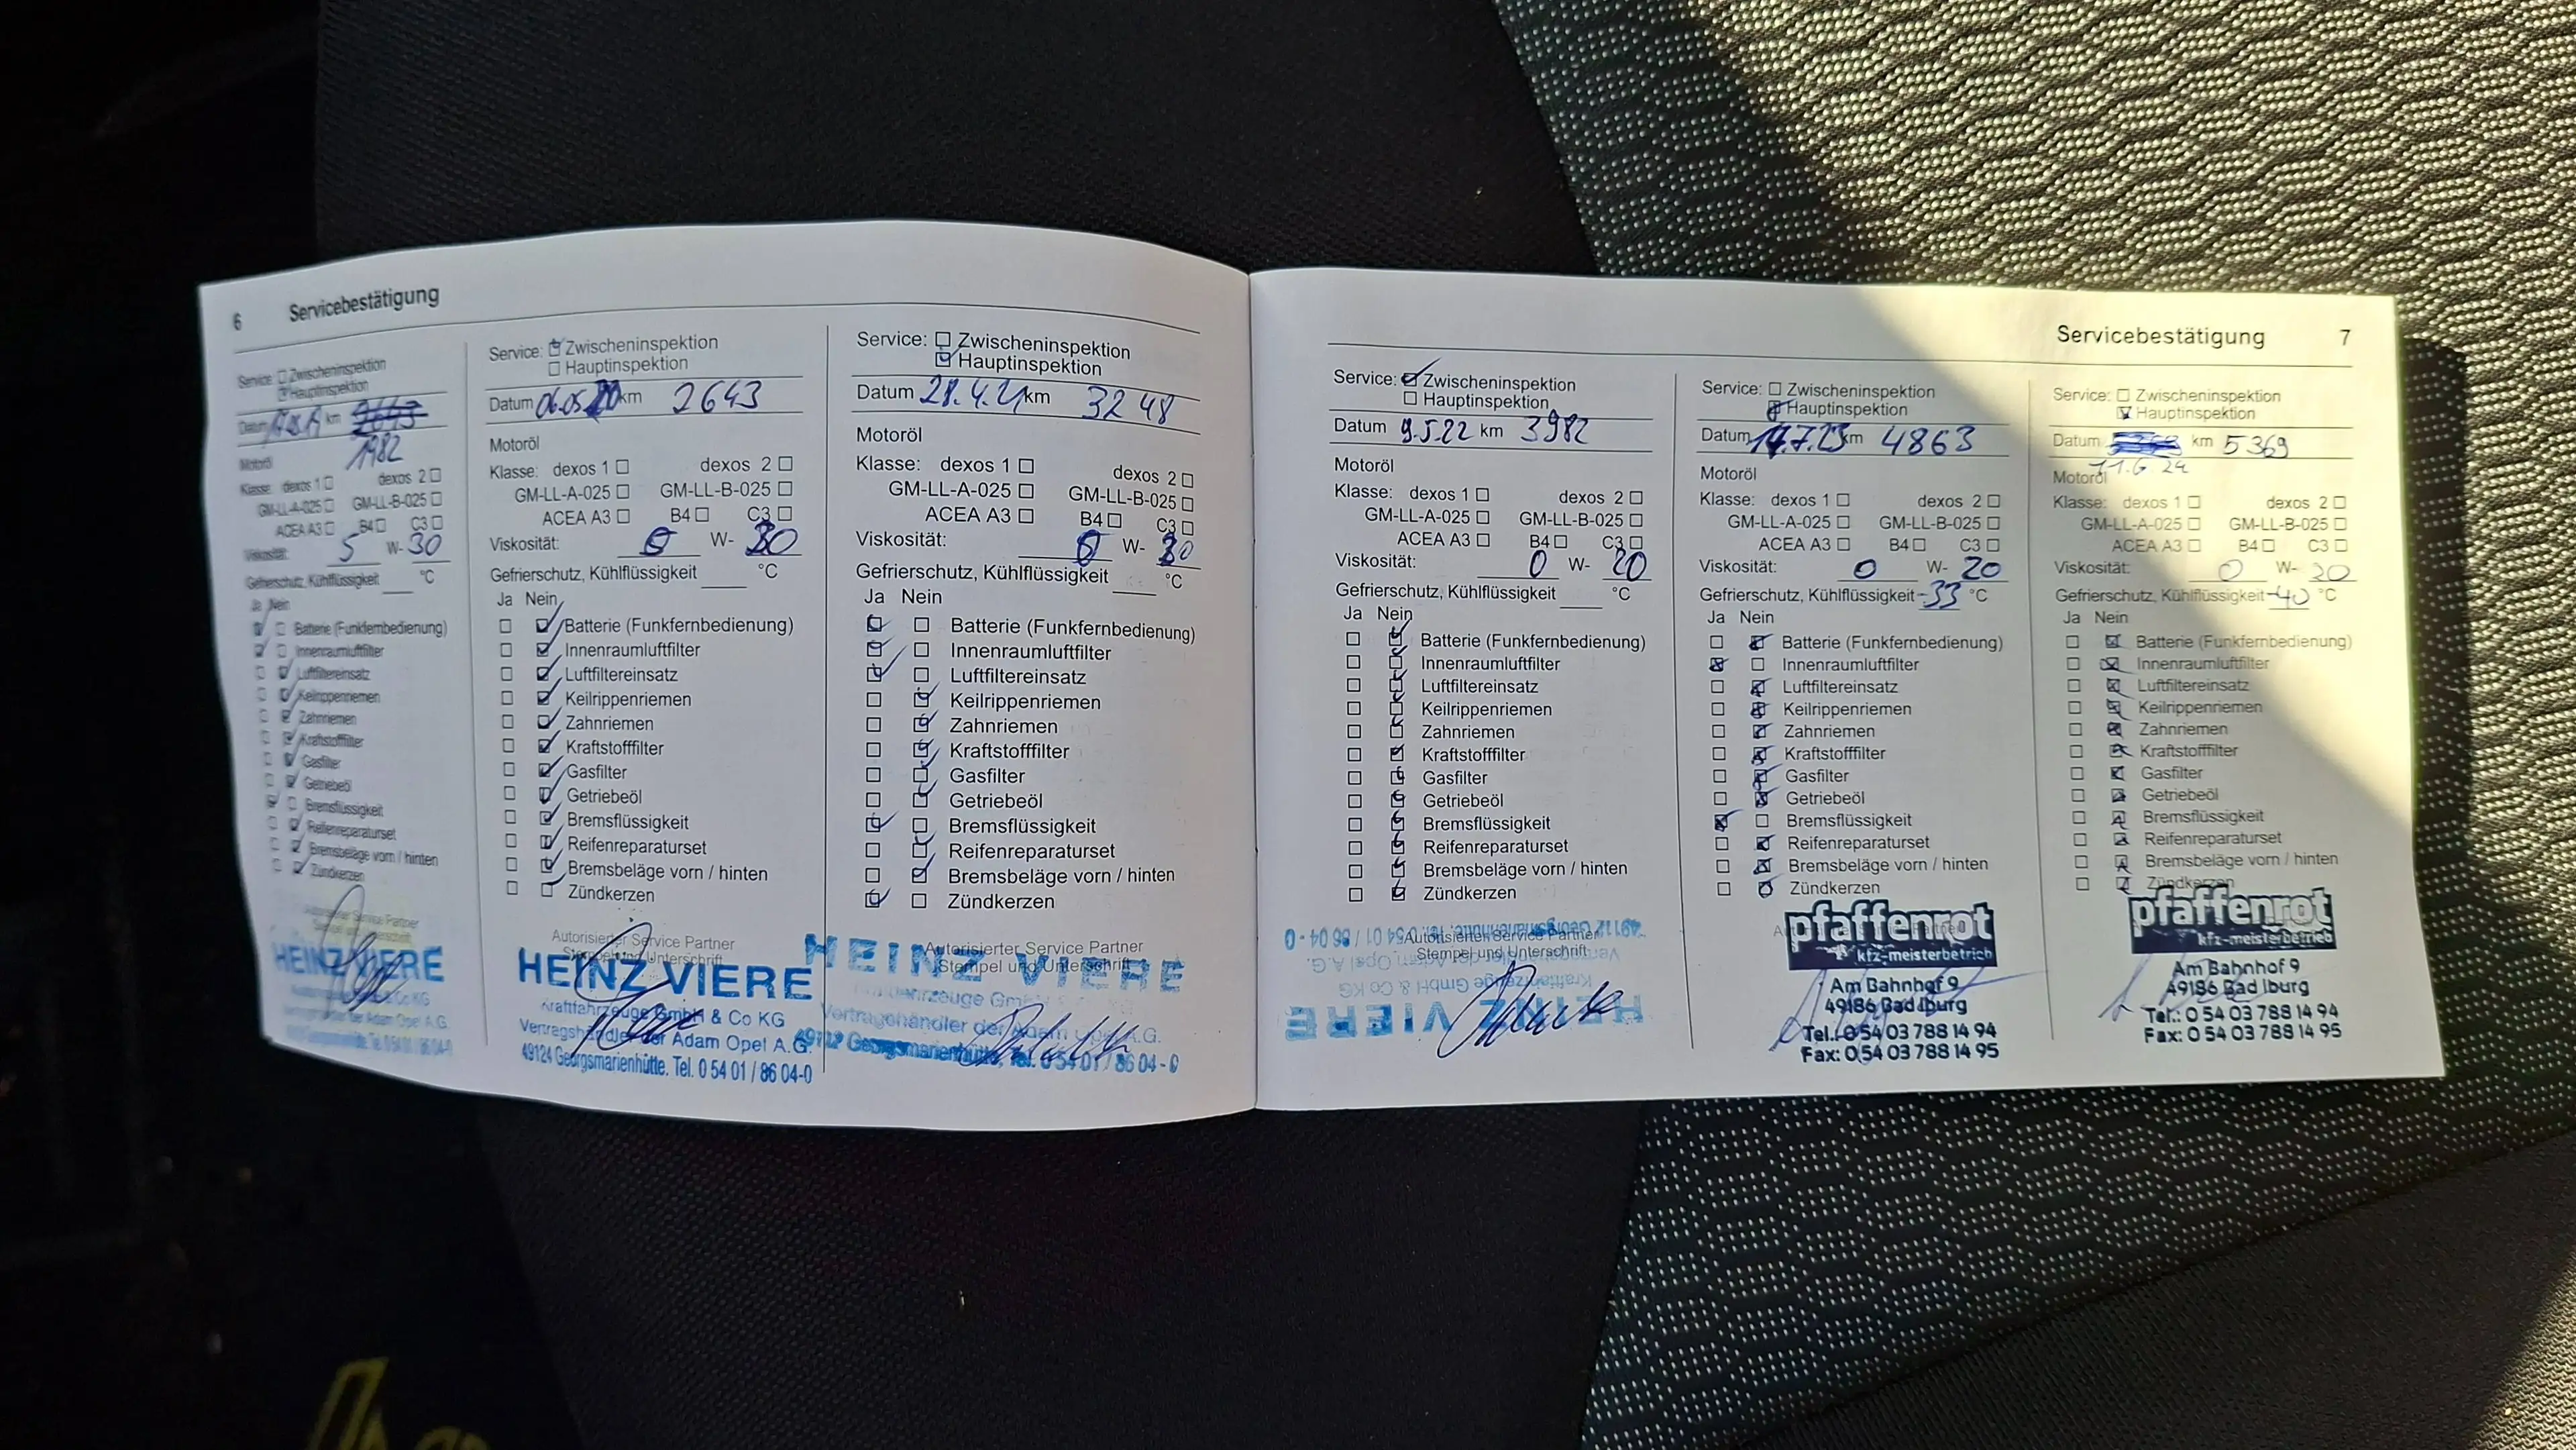 6 Servicebestätigung
Service: Zwischeninspektion
Hauptinspektion
Datum km 2643
1982
Motoröl
Klasse: dexos 1 dexos 2
GM-LL-A-025 GM-LL-B-025
ACEA A3 B4 C3
Viskosität: 5 W- 30
Gefrierschutz, Kühlflüssigkeit °C
Ja Nein
Batterie (Funkfernbedienung)
Innenraumluftfilter
Luftfiltereinsatz
Keilrippenriemen
Zahnriemen
Kraftstofffilter
Gasfilter
Getriebeöl
Bremsflüssigkeit
Reifenreparaturset
Bremsbeläge vorn / hinten
Zündkerzen
Autorisierter Service Partner
Stempel und Unterschrift
HEINZ VIERE
Vertragshändler der Adam Opel A.G.
Service: Zwischeninspektion
Hauptinspektion
Datum 06.05.20 km 2643
Motoröl
Klasse: dexos 1 dexos 2
GM-LL-A-025 GM-LL-B-025
ACEA A3 B4 C3
Viskosität: 0 W- 20
Gefrierschutz, Kühlflüssigkeit °C
Ja Nein
Batterie (Funkfernbedienung)
Innenraumluftfilter
Luftfiltereinsatz
Keilrippenriemen
Zahnriemen
Kraftstofffilter
Gasfilter
Getriebeöl
Bremsflüssigkeit
Reifenreparaturset
Bremsbeläge vorn / hinten
Zündkerzen
Autorisierter Service Partner
Stempel und Unterschrift
HEINZ VIERE
Kraftfahrzeuge GmbH & Co KG
Vertragshändler der Adam Opel A.G.
49124 Georgsmarienhütte. Tel. 0 54 01 / 86 04-0
Service: Zwischeninspektion
Hauptinspektion
Datum 28.4.21 km 3248
Motoröl
Klasse: dexos 1 dexos 2
GM-LL-A-025 GM-LL-B-025
ACEA A3 B4 C3
Viskosität: 0 W- 20
Gefrierschutz, Kühlflüssigkeit °C
Ja Nein
Batterie (Funkfernbedienung)
Innenraumluftfilter
Luftfiltereinsatz
Keilrippenriemen
Zahnriemen
Kraftstofffilter
Gasfilter
Getriebeöl
Bremsflüssigkeit
Reifenreparaturset
Bremsbeläge vorn / hinten
Zündkerzen
Autorisierter Service Partner
Stempel und Unterschrift
HEINZ VIERE
Vertragshändler der Adam Opel A.G.
Georgsmarienhütte, Tel. 0 54 01 / 86 04 - 0
Servicebestätigung 7
Service: Zwischeninspektion
Hauptinspektion
Datum 9.5.22 km 3982
Motoröl
Klasse: dexos 1 dexos 2
GM-LL-A-025 GM-LL-B-025
ACEA A3 B4 C3
Viskosität: 0 W- 20
Gefrierschutz, Kühlflüssigkeit °C
Ja Nein
Batterie (Funkfernbedienung)
Innenraumluftfilter
Luftfiltereinsatz
Keilrippenriemen
Zahnriemen
Kraftstofffilter
Gasfilter
Getriebeöl
Bremsflüssigkeit
Reifenreparaturset
Bremsbeläge vorn / hinten
Zündkerzen
Autorisierter Service Partner
Stempel und Unterschrift
HEINZ VIERE
Kraftfahrzeuge GmbH & Co KG
Vertragshändler der Adam Opel A.G.
49112 Georgsmarienhütte, Tel. 0 54 01 / 86 04 - 0
Service: Zwischeninspektion
Hauptinspektion
Datum 7.23 km 4863
Motoröl
Klasse: dexos 1 dexos 2
GM-LL-A-025 GM-LL-B-025
ACEA A3 B4 C3
Viskosität: 0 W- 20
Gefrierschutz, Kühlflüssigkeit -33 °C
Ja Nein
Batterie (Funkfernbedienung)
Innenraumluftfilter
Luftfiltereinsatz
Keilrippenriemen
Zahnriemen
Kraftstofffilter
Gasfilter
Getriebeöl
Bremsflüssigkeit
Reifenreparaturset
Bremsbeläge vorn / hinten
Zündkerzen
pfaffenrot
kfz-meisterbetrieb
Am Bahnhof 9
49186 Bad Iburg
Tel.: 0 54 03 788 14 94
Fax: 0 54 03 788 14 95
Service: Zwischeninspektion
Hauptinspektion
Datum km 5369
11.6 24
Motoröl
Klasse: dexos 1 dexos 2
GM-LL-A-025 GM-LL-B-025
ACEA A3 B4 C3
Viskosität: 0 W- 20
Gefrierschutz, Kühlflüssigkeit -40 °C
Ja Nein
Batterie (Funkfernbedienung)
Innenraumluftfilter
Luftfiltereinsatz
Keilrippenriemen
Zahnriemen
Kraftstofffilter
Gasfilter
Getriebeöl
Bremsflüssigkeit
Reifenreparaturset
Bremsbeläge vorn / hinten
Zündkerzen
pfaffenrot
kfz-meisterbetrieb
Am Bahnhof 9
49186 Bad Iburg
Tel.: 0 54 03 788 14 94
Fax: 0 54 03 788 14 95